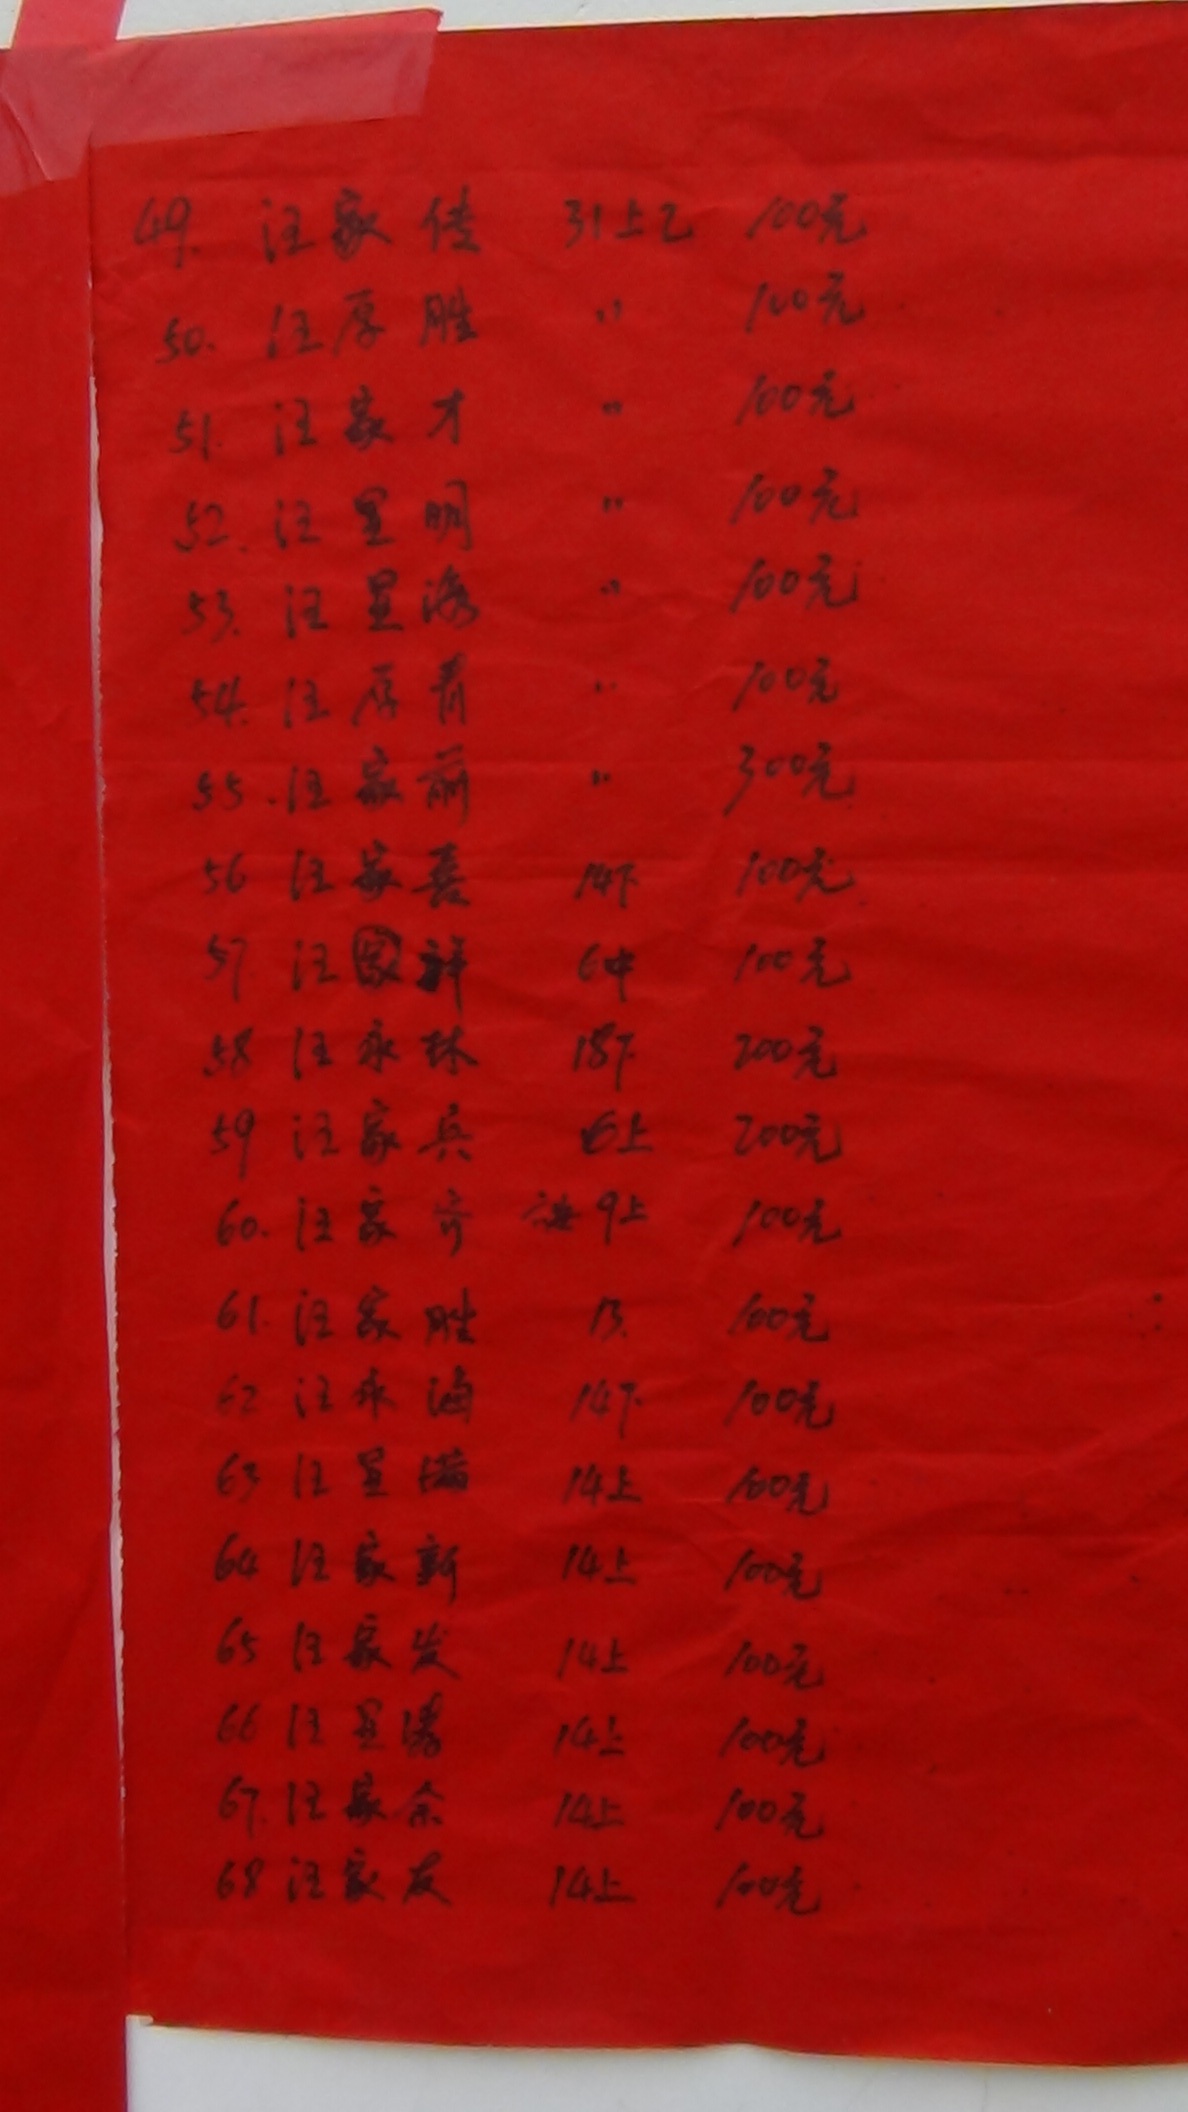 49. 汪家传 31上乙 100元
50. 汪厚胜 〃 100元
51. 汪家才 〃 100元
52. 汪显明 〃 100元
53. 汪显海 〃 100元
54. 汪厚青 〃 100元
55. 汪家前 〃 300元
56 汪家喜 14下 100元
57 汪家祥 6中 100元
58 汪永林 18下 200元
59 汪家兵 6上 200元
60. 汪家齐 9上 100元
61. 汪家胜 13 100元
62 汪永海 14下 100元
63 汪显满 14上 100元
64 汪家新 14上 100元
65 汪家发 14上 100元
66 汪显 14上 100元
67. 汪家余 14上 100元
68 汪家友 14上 100元